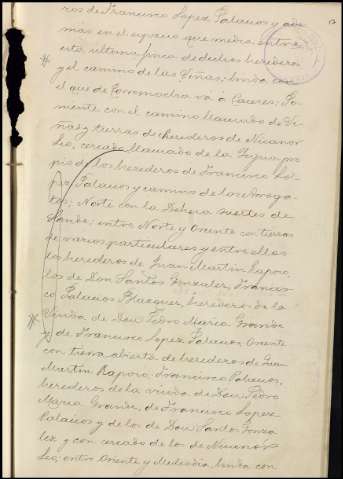 ros de Francisco Lopez Palacios y ade
mas en el espacio que media entre
esta ultima finca de dichos herederos
y el camino de las Viñas; linda con
el que de Torremocha va á Caceres; Po-
niente con el camino llamado de Vi-
ñas y tierras de herederos de Nicanor
Leo, cercado llamado de la Yegua pro
pio de los herederos de Francisco Lo-
pez Palacios y camino de los Arroga-
tos; Norte con la Dehesa suertes de
donde; entre Norte y Oriente con tierras
de varios particulares y entre ellos
los herederos de Juan Martin Rapoio,
los de Don Santos Gonzalez, Francis-
co Palacios Blazquez, herederos de la
Viuda de Don Pedro Maria Grande
y de Francisco Lopez Palacios; Oriente
con tierra abierta de herederos de Juan
Martin Rapoio, Francisco Palacios,
herederos de la viuda de Don Pedro
Maria Grande, de Francisco Lopez
Palacios y de los de Don Santos Gonza
lez y con cercado de los de Nicanor
Leo; entre Oriente y Mediodia linda con